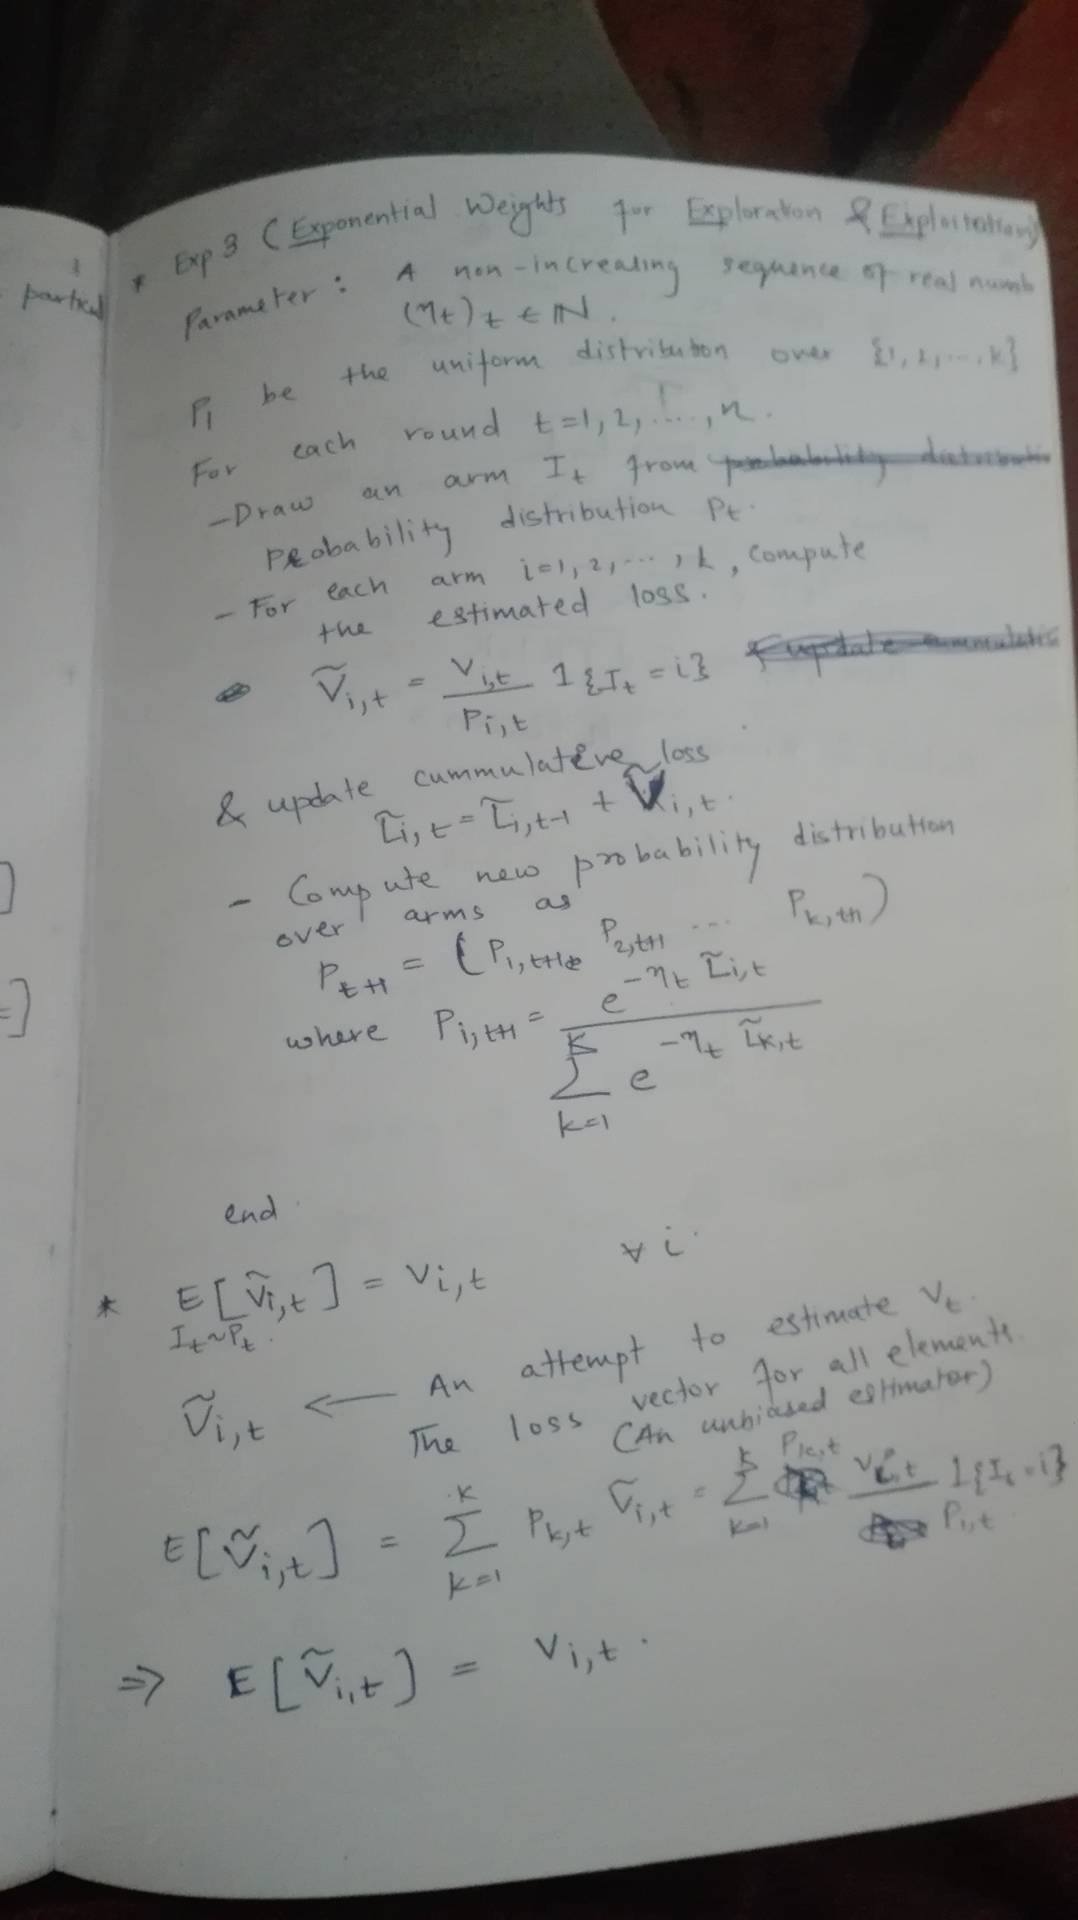 particul
]
=]
* Exp 3 (Exponential Weights for Exploration & Exploitation)
Parameter: A non-increasing sequence of real numb
(η_t)_t ∈ ℕ.
P_1 be the uniform distribution over {1, 2, ..., k}
For each round t=1, 2, ...., n.
- Draw an arm I_t from
Probability distribution P_t.
- For each arm i=1, 2, ..., k, compute
the estimated loss.
Ṽ_{i,t} = V_{i,t} / P_{i,t} 1{I_t = i}
& update cummulative loss
L̃_{i,t} = L̃_{i,t-1} + Ṽ_{i,t}.
- Compute new probability distribution
over arms as
P_{t+1} = (P_{1,t+1}, P_{2,t+1} ... P_{k,t+1})
where P_{i,t+1} = e^{-η_t L̃_{i,t}} / ∑_{k=1}^{K} e^{-η_t L̃_{k,t}}
end.
* E_{I_t∼P_t}[Ṽ_{i,t}] = V_{i,t} ∀ i.
Ṽ_{i,t} ← An attempt to estimate V_t.
The loss vector for all elements.
(An unbiased estimator)
E[Ṽ_{i,t}] = ∑_{k=1}^{K} P_{k,t} Ṽ_{i,t} = ∑_{k=1}^{k} P_{k,t} V_{i,t} / P_{i,t} 1{I_t = i}
⇒ E[Ṽ_{i,t}] = V_{i,t}.